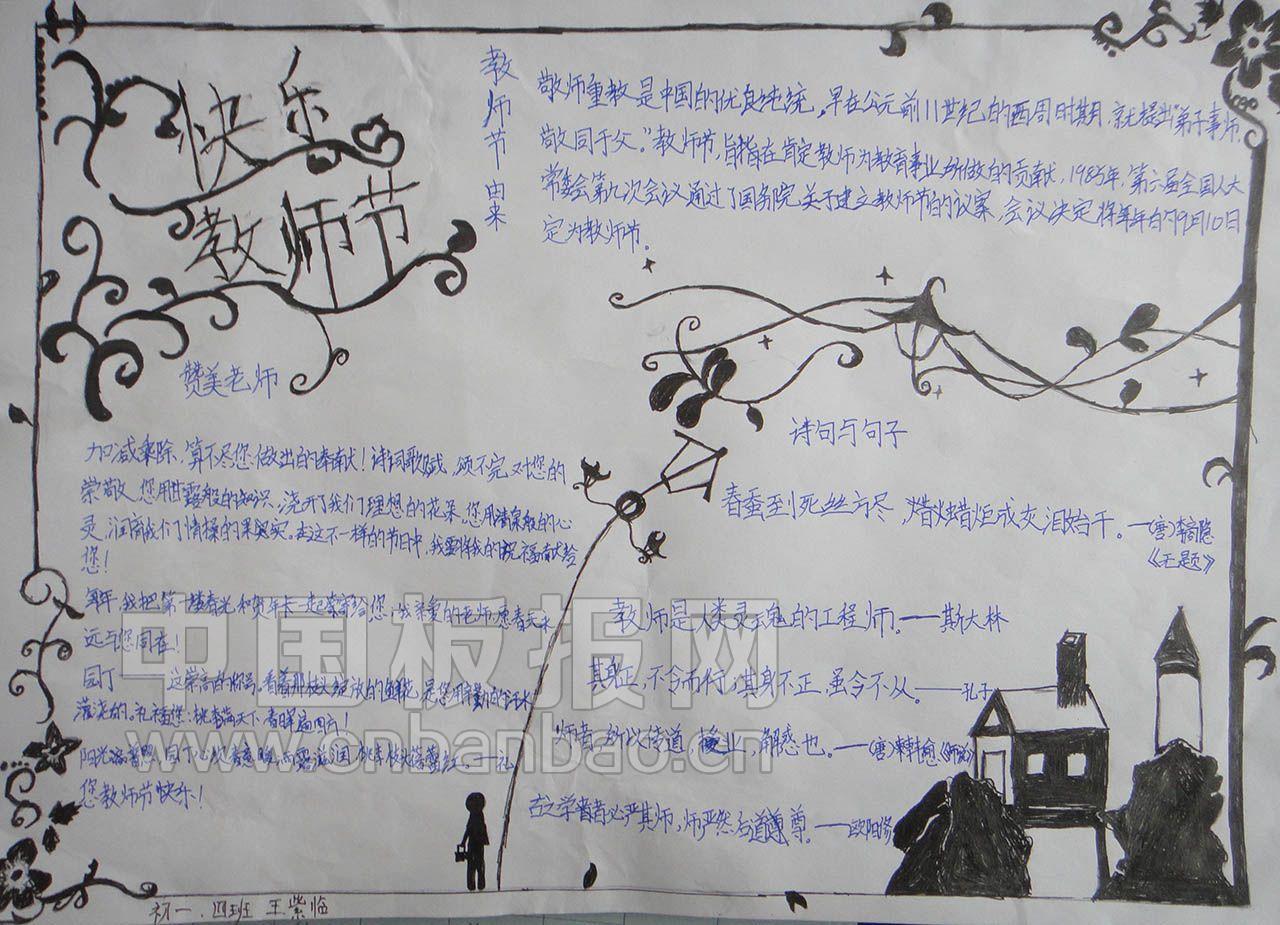 快乐
教师节
教师节由来
敬师重教是中国的优良传统。早在公元前11世纪的西周时期,就提出"弟子事师,
敬同于父。"教师节,旨在肯定教师为教育事业所做的贡献,1985年,第六届全国人大
常委会第九次会议通过了国务院关于建立教师节的议案,会议决定将每年的9月10日
定为教师节。
赞美老师
加减乘除,算不尽您做出的奉献!诗词歌赋,颂不完对您的
崇敬。您用甘露般的知识,浇开了我们理想的花朵,您用清泉般的心
灵,润育我们情操的果实。在这不一样的节日中,我要将我的祝福献给
您!
每年,我把第一缕春光和贺年卡一起寄给您,我亲爱的老师,愿春天永
远与您同在!
园丁 这崇高的称号。看着那枝绽放的鲜花 是您用的活水
灌浇的。礼 您:桃李满天下,春晖遍四方!
阳光 普照,园丁心坎春意暖,雨露滋润,桃李枝头蓓蕾红。——祝
您教师节快乐!
诗句与句子
春蚕到死丝方尽,蜡烛蜡炬成灰泪始干。——(唐)李商隐
《无题》
教师是人类灵魂的工程师。——斯大林
其身正,不令而行,其身不正,虽令不从。——孔子
师者,所以传道,授业,解惑也。——(唐)韩愈《师说》
古之学者必严其师,师严然后道尊。——欧阳修
初一.四班 王紫临
中国板报网
www.cnbanbao.cn